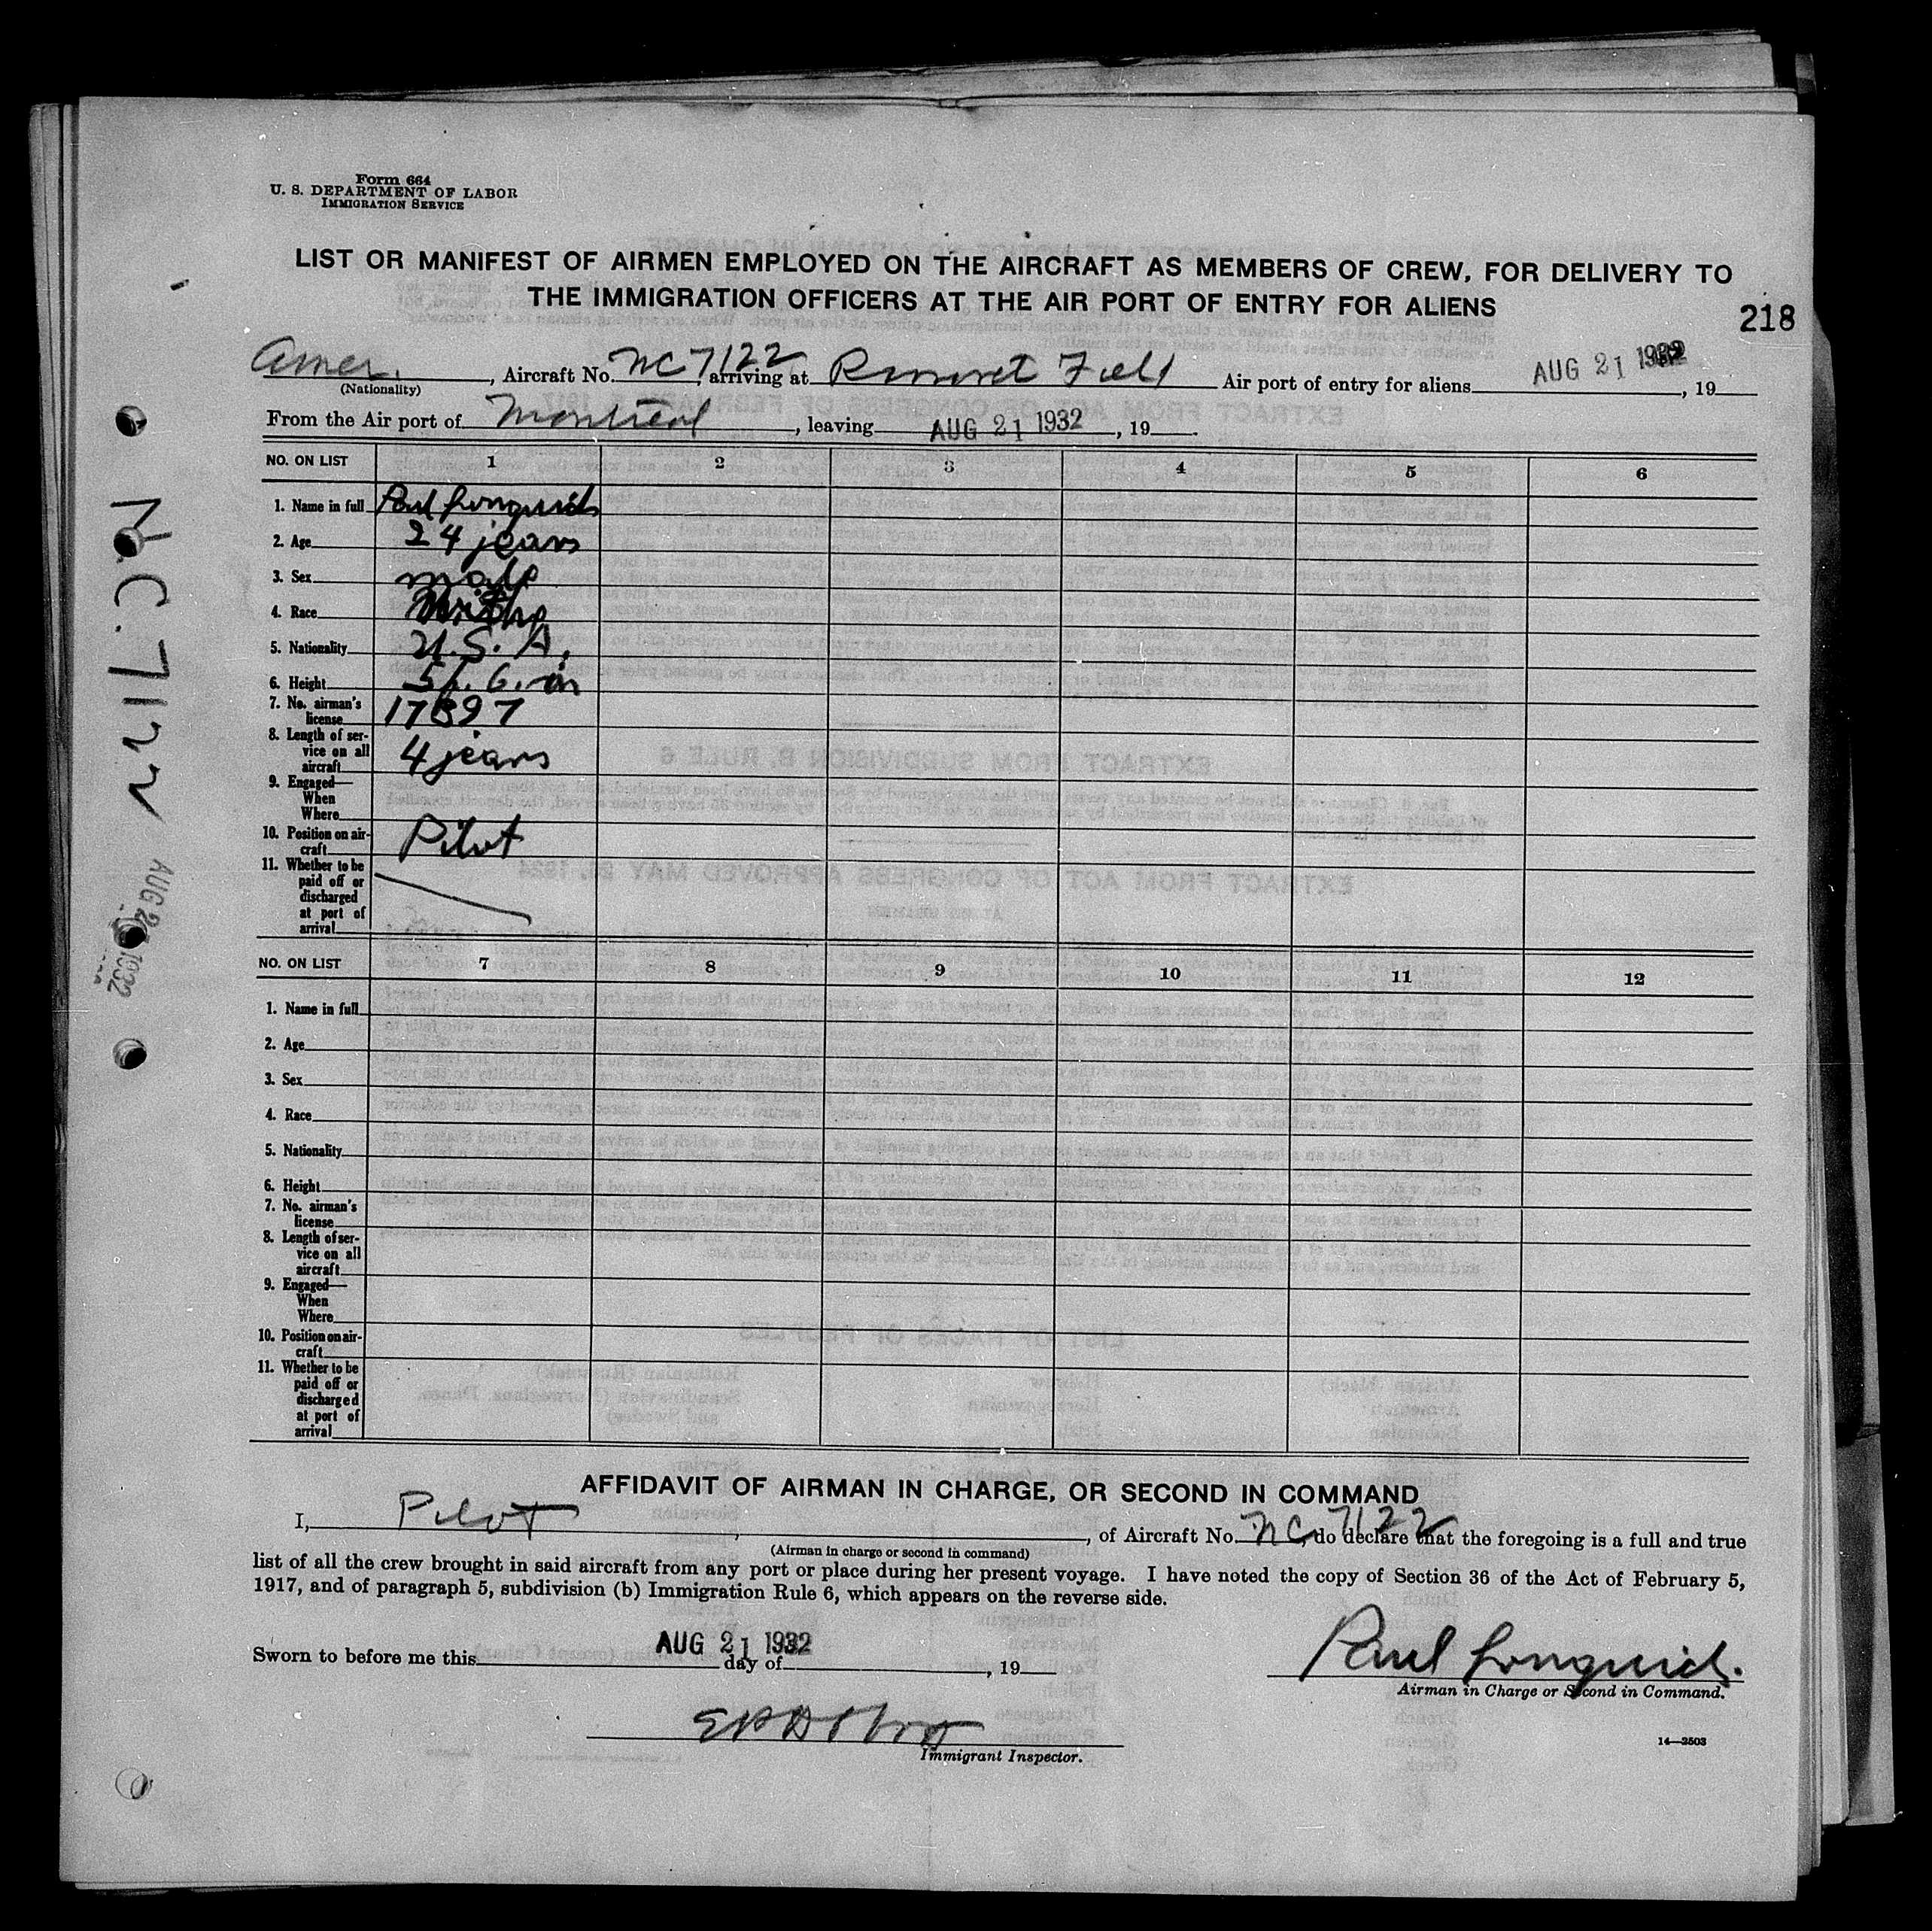 Form 664
U. S. DEPARTMENT OF LABOR
IMMIGRATION SERVICE
LIST OR MANIFEST OF AIRMEN EMPLOYED ON THE AIRCRAFT AS MEMBERS OF CREW, FOR DELIVERY TO
THE IMMIGRATION OFFICERS AT THE AIR PORT OF ENTRY FOR ALIENS
218
Amer. , Aircraft No. NC7122, arriving at Field Air port of entry for aliens AUG 21 1932, 19
(Nationality)
From the Air port of Montreal, leaving AUG 21 1932, 19 .
NO. ON LIST 1 2 3 4 5 6
1. Name in full Paul
2. Age 24 jears
3. Sex male
4. Race
5. Nationality U.S.A.
6. Height 5f. 6. in
7. No. airman's
license 17897
8. Length of ser-
vice on all
aircraft 4 jears
9. Engaged—
When
Where
10. Position on air-
craft Pilot
11. Whether to be
paid off or
discharged
at port of
arrival
NO. ON LIST 7 8 9 10 11 12
1. Name in full
2. Age
3. Sex
4. Race
5. Nationality
6. Height
7. No. airman's
license
8. Length of ser-
vice on all
aircraft
9. Engaged—
When
Where
10. Position on air-
craft
11. Whether to be
paid off or
discharged
at port of
arrival
NC7122
AUG 21 1932
AFFIDAVIT OF AIRMAN IN CHARGE, OR SECOND IN COMMAND
I, Pilot, of Aircraft No. NC7122, do declare that the foregoing is a full and true
(Airman in charge or second in command)
list of all the crew brought in said aircraft from any port or place during her present voyage. I have noted the copy of Section 36 of the Act of February 5,
1917, and of paragraph 5, subdivision (b) Immigration Rule 6, which appears on the reverse side.
Sworn to before me this AUG 21 1932 day of , 19
Paul
Airman in Charge or Second in Command.
Immigrant Inspector.
14—2503